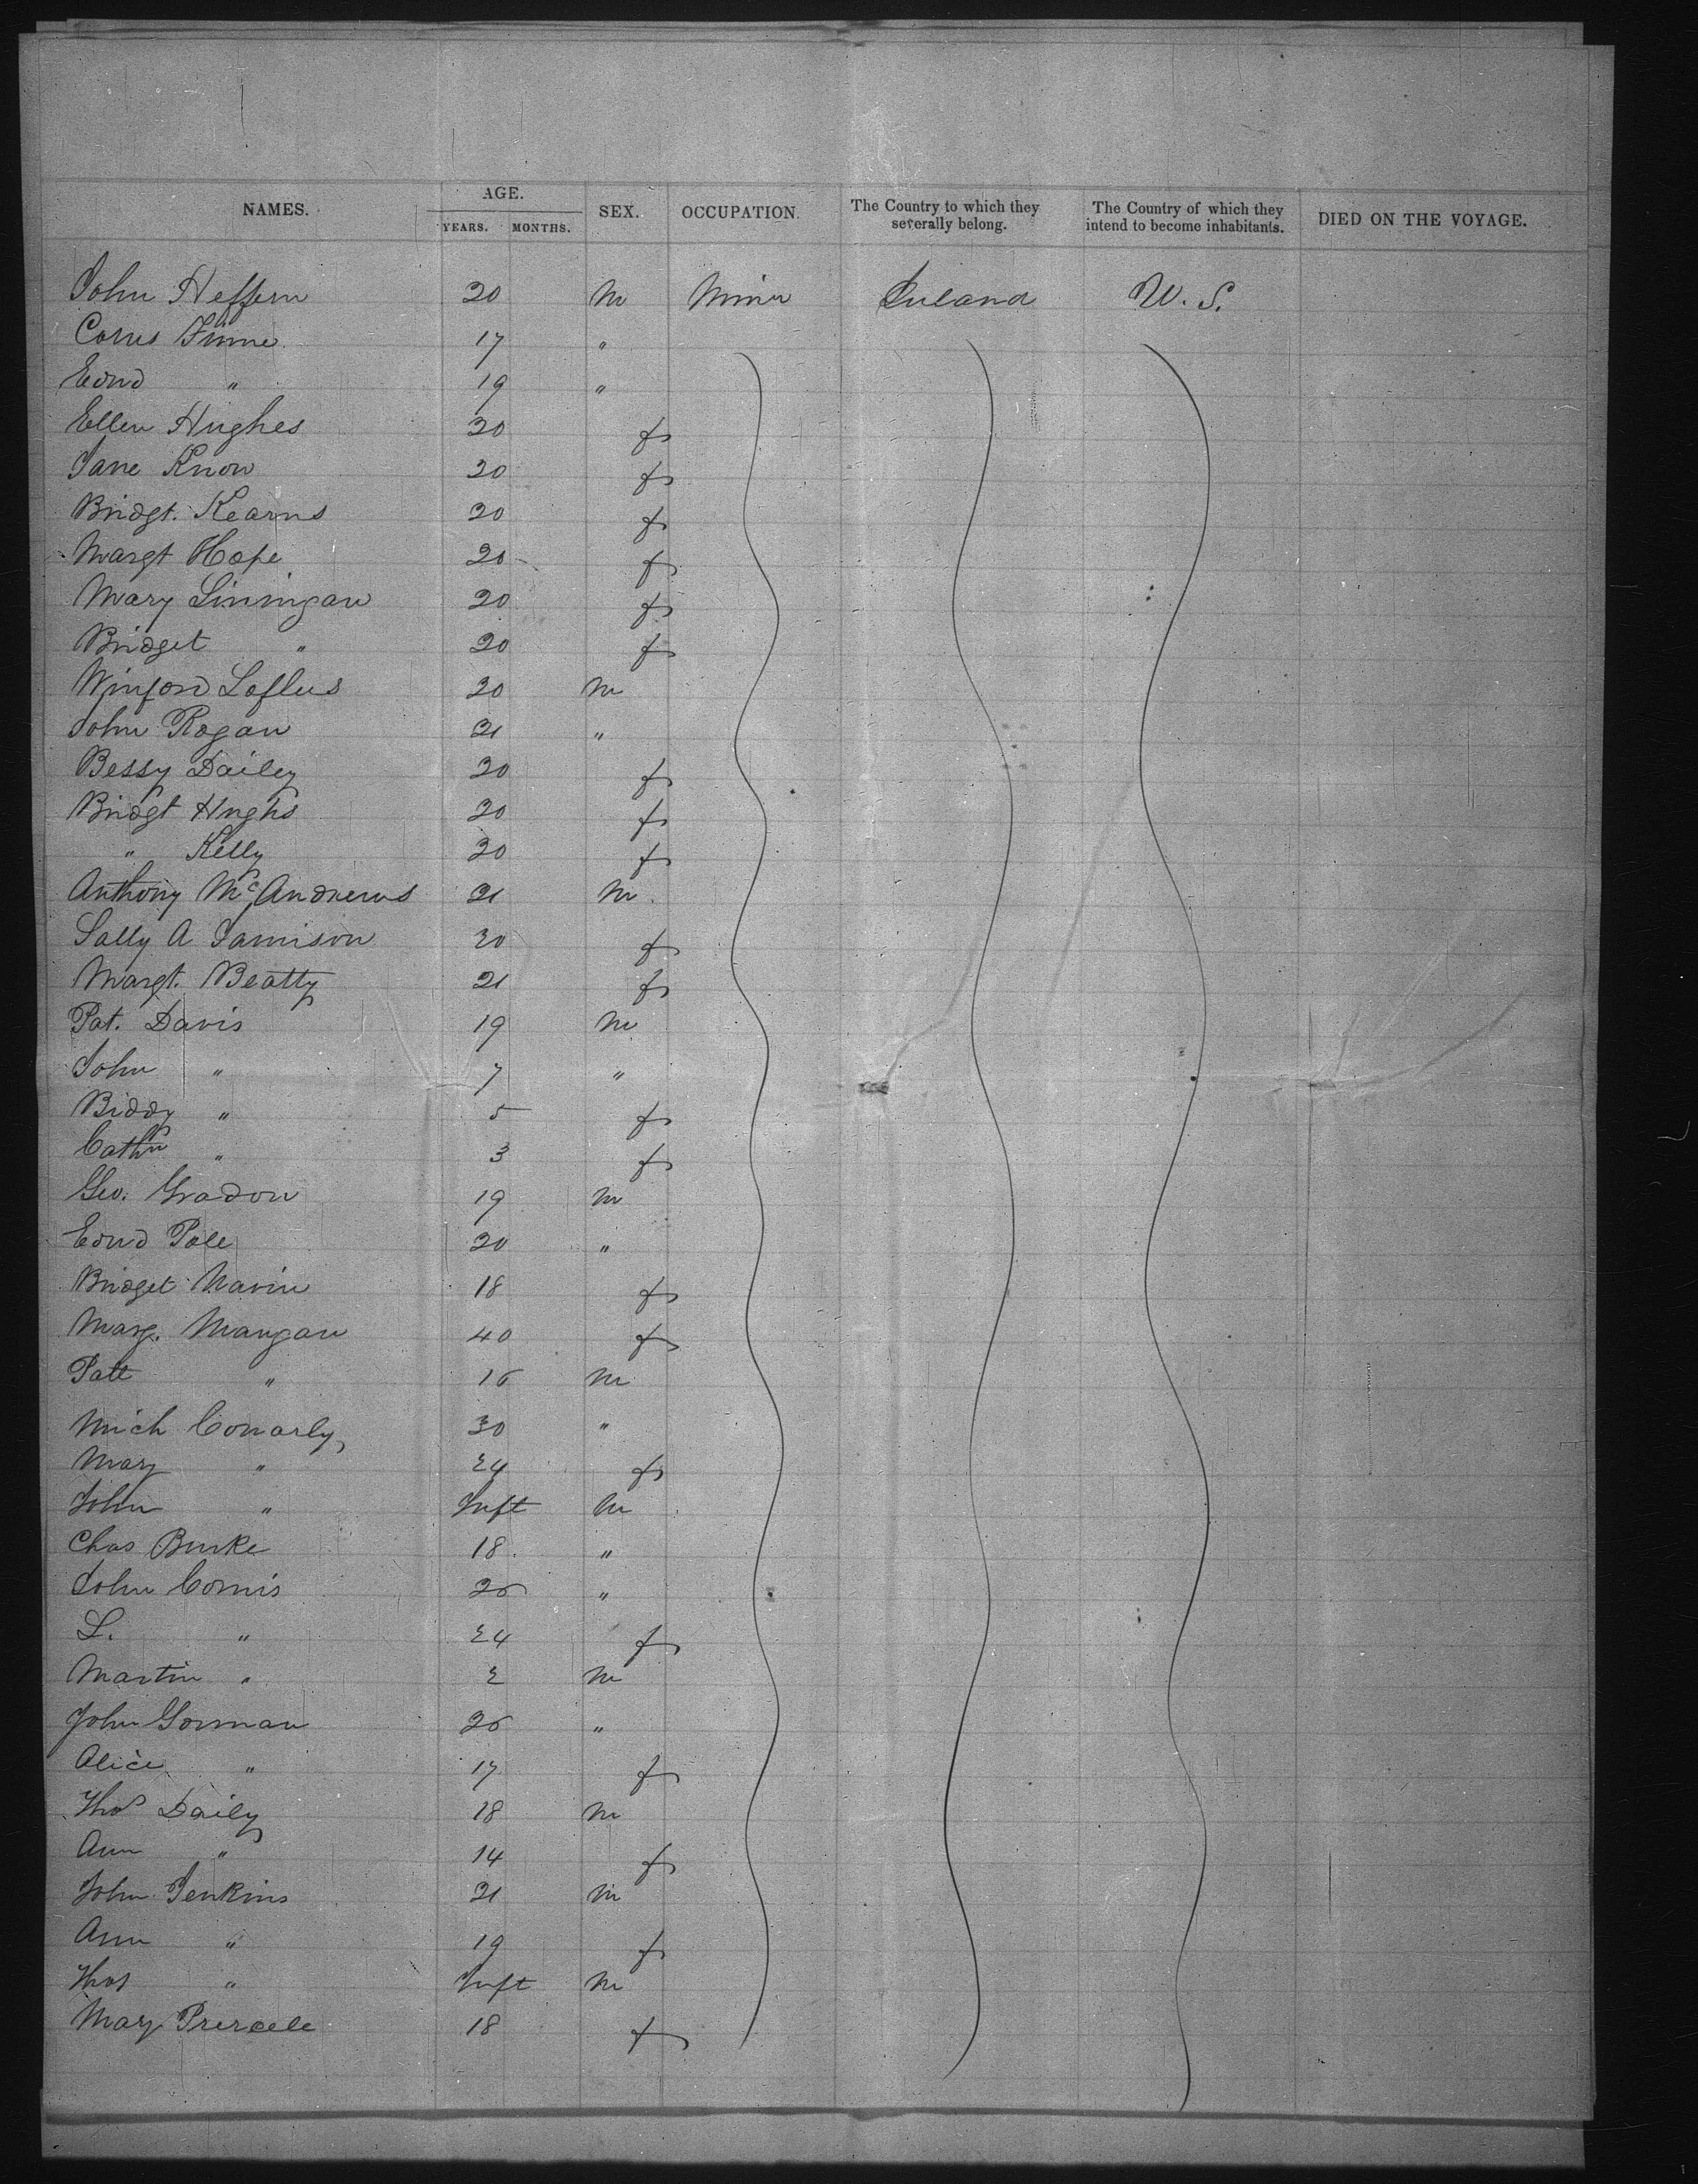 NAMES. AGE. SEX. OCCUPATION. The Country to which they severally belong. The Country of which they intend to become inhabitants. DIED ON THE VOYAGE.
YEARS. MONTHS.
John Heffern 20 m Miner Ireland U. S.
17 "
Edwd " 19 "
Ellen Hughes 20 f
Jane Know 20 f
Bridgt. Kearns 20 f
Margt Hope 20 f
Mary Liningan 20 f
Bridget " 20 f
Winford Loftus 20 m
John Rogan 21 "
Bessy Dailey 20 f
Bridgt Hughs 20 f
" Kelly 20 f
Anthony McAndrews 21 m
Sally A Jamison 20 f
Margt. Beatty 21 f
Pat. Davis 19 m
John " 7 "
Biddy " 5 f
Cathn " 3 f
Geo. Gradon 19 m
Edwd Pole 20 "
Bridget Navin 18 f
Marg. Mangan 40 f
Patt " 16 m
Mich Conarly 30 "
Mary " 24 f
John " Inft m
Chas Burke 18 "
John Cornis "
L. " 24 f
Martin " 2 m
John Gorman "
Alice " 17 f
Thos Daily 18 m
Ann " 14 f
John Jenkins 21 m
Ann " 19 f
Thos " Inft m
Mary 18 f